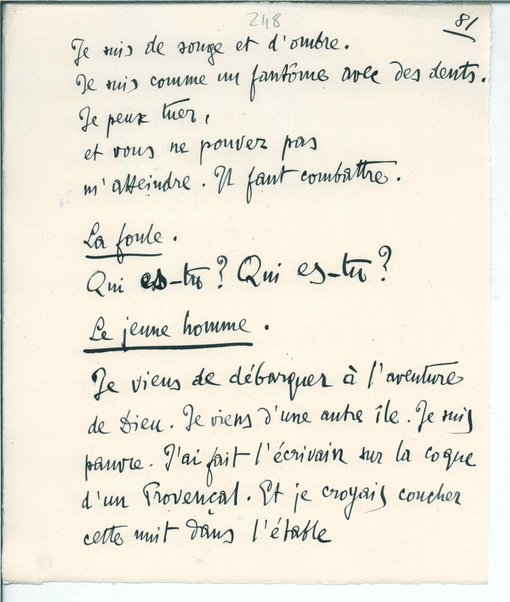 248
81
Je suis de songe et d'ombre.
Je suis comme un fantôme avec des dents.
Je peux tuer,
et vous ne pouvez pas
m'atteindre. Il faut combattre.
La foule.
Qui es-tu? Qui es-tu?
Le jeune homme.
Je viens de débarquer à l'aventure
de Dieu. Je viens d'une autre île. Je suis
pauvre. J'ai fait l'écrivain sur la coque
d'un Provençal. Et je croyais coucher
cette nuit dans l'étable